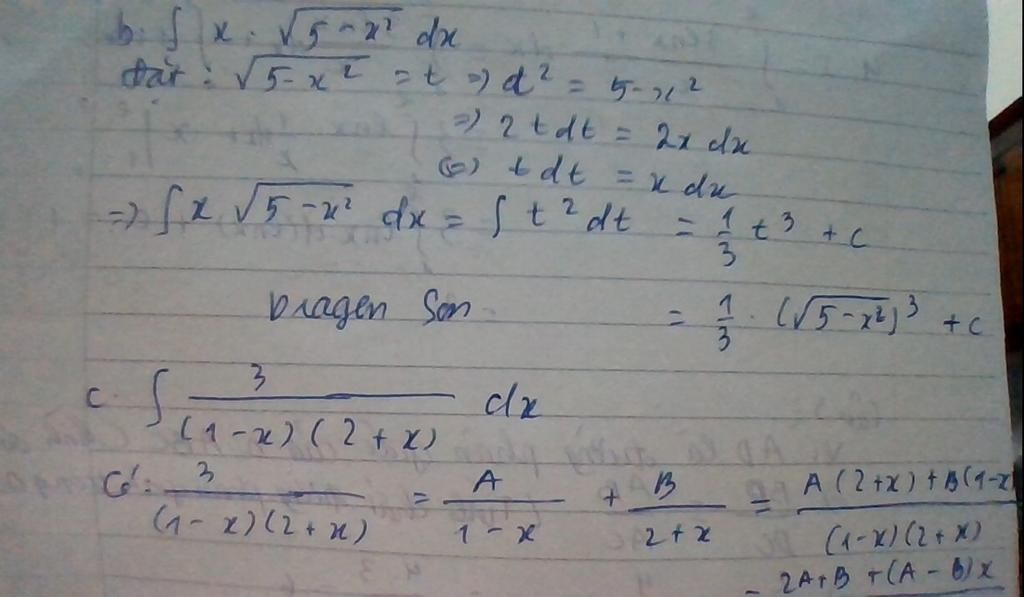 b. ∫ x . √(5-x²) dx
đặt : √(5-x²) = t => d² = 5-x²
=> 2tdt = 2x dx
(=) tdt = x dx
=> ∫ x √(5-x²) dx = ∫ t² dt = 1/3 t³ + c
Dragen Son = 1/3 . (√(5-x²))³ + c
c. ∫ 3/((1-x)(2+x)) dx
Có : 3/((1-x)(2+x)) = A/(1-x) + B/(2+x) = A(2+x)+B(1-x/((1-x)(2+x))
= 2A+B+(A-B)x